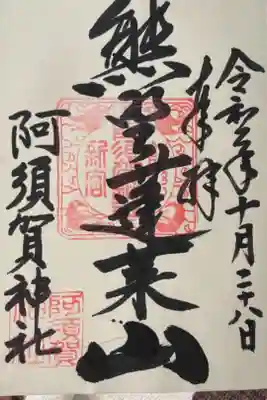 令和二年十月二十八日
奉拝
熊野蓬莱山
阿須賀神社
新宮
阿須賀